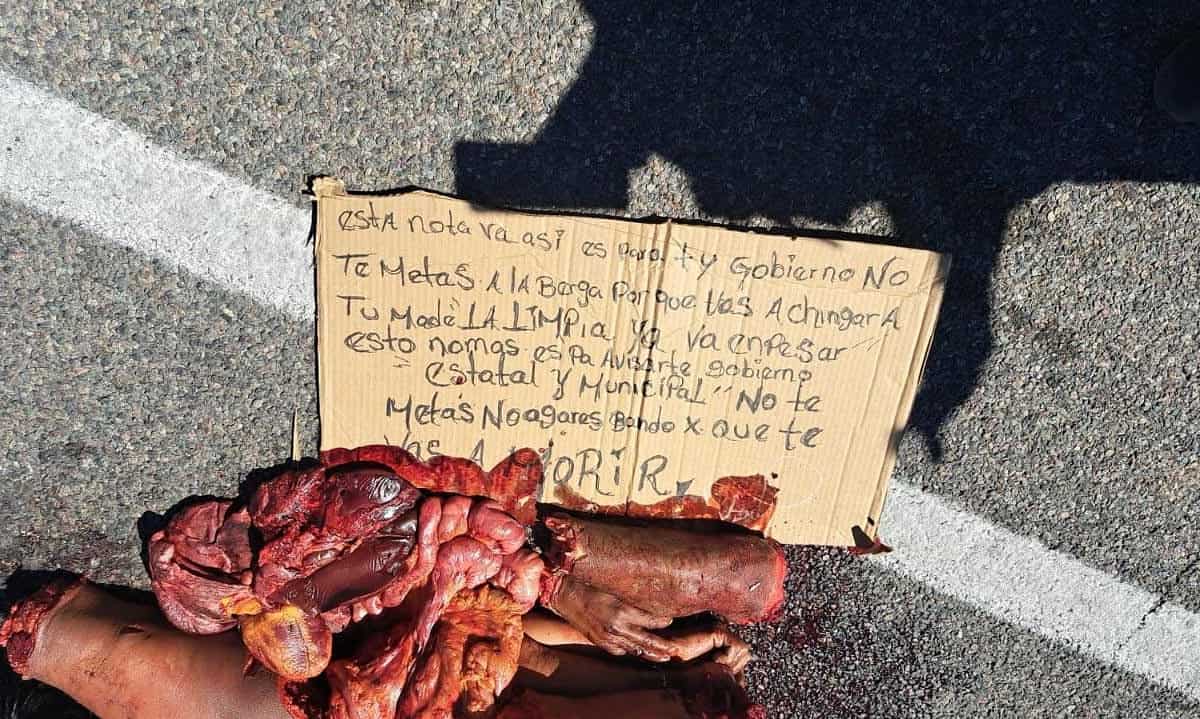 estA nota va asi es para ty Gobierno No
Te Metas A lA Berga Porque Vas A chingar A
Tu Made LA LiMPia ya va enpesar
esto nomas es pa Avisarte gobierno
estatal y Municipal" No te
Metas No agares Bando x que te
Vas A MoRiR